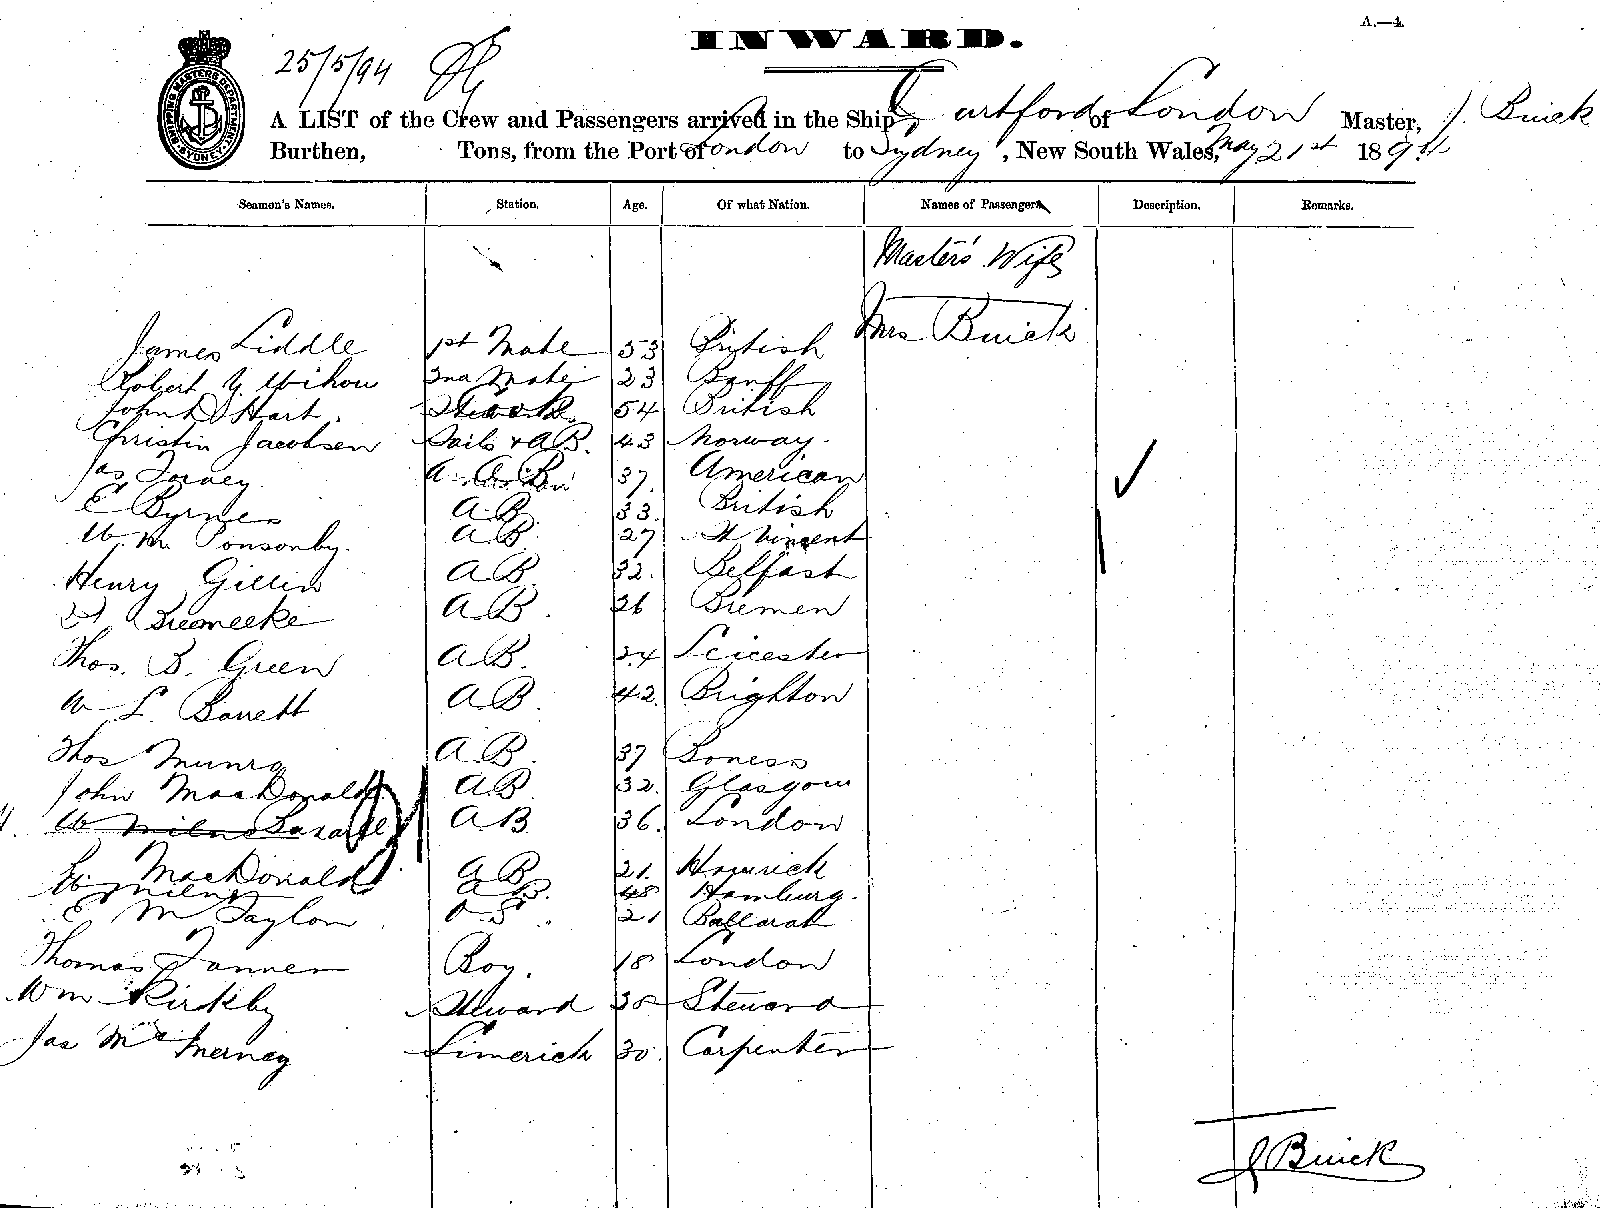 A.—4.
INWARD.
25/5/94
SHIPPING MASTERS DEPARTMENT SYDNEY
A LIST of the Crew and Passengers arrived in the Ship Dartford of London Master, J. Buick
Burthen, Tons, from the Port of London to Sydney, New South Wales, May 21st 1894
Seamen's Names. Station. Age. Of what Nation. Names of Passengers Description. Remarks.
Master's Wife
Mrs Buick
James Liddle 1st Mate 53 British
Robert Y. 2nd Mate 23 Banff
John Hart. 54 British
Christin Jacobsen Sails & AB. 43 Norway.
Jas Torney A.B. 37. American
E Byrnes AB. 33. British
W. M. Ponsonby. AB. 27 St Vincent
Henry Gillin AB. 32. Belfast
AB. 26 Bremen
Thos. B. Green AB. 24 Leicester
W L. Barrett AB. 42. Brighton
Thos Munro AB. 37 Boness
John MacDonald AB 32. Glasgow
W Milne AB 36. London
MacDonald AB 21.
W. Milne AB. 48 Hamburg.
E M Taylor OS. 21 Ballarat
Thomas Tanner Boy. 18 London
Wm Kirkby Steward 38 Steward
Jas McInerney Limerick 30. Carpenter
J Buick